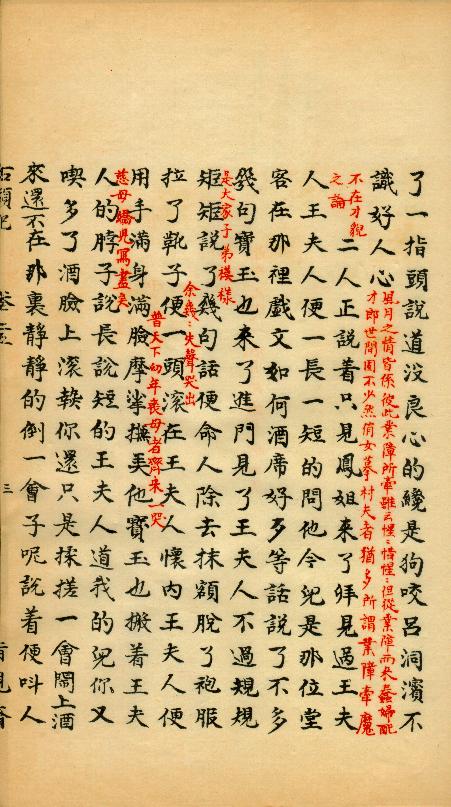 了一指頭說道沒良心的纔是狗咬呂洞濱不
識好人心
風月之情皆係彼此業障所牽雖云惺:惜惺:但從業障而來蠢婦配
才郎世間固不少然俏女慕村夫者猶多所謂業障牽魔
不在才貌
之論
二人正說着只見鳳姐來了拜見過王夫
人王夫人便一長一短的問他今兒是那位堂
客在那裡戲文如何酒席好歹等話說了不多
幾句寶玉也來了進門見了王夫人不過規規
是大家子弟模樣
矩矩說了幾句話便命人除去抹額脫了袍服
余幾:失聲哭出
拉了靴子便一頭滾在王夫人懷內王夫人便
普天下幼年喪母者齊來一哭
用手滿身滿臉摩挲撫弄他寶玉也搬着王夫
慈母嬌兒寫盡矣
人的脖子說長說短的王夫人道我的兒你又
喫多了酒臉上滾熱你還只是揉搓一會鬧上酒
來還不在那裏靜靜的倒一會子呢說着便叫人
三